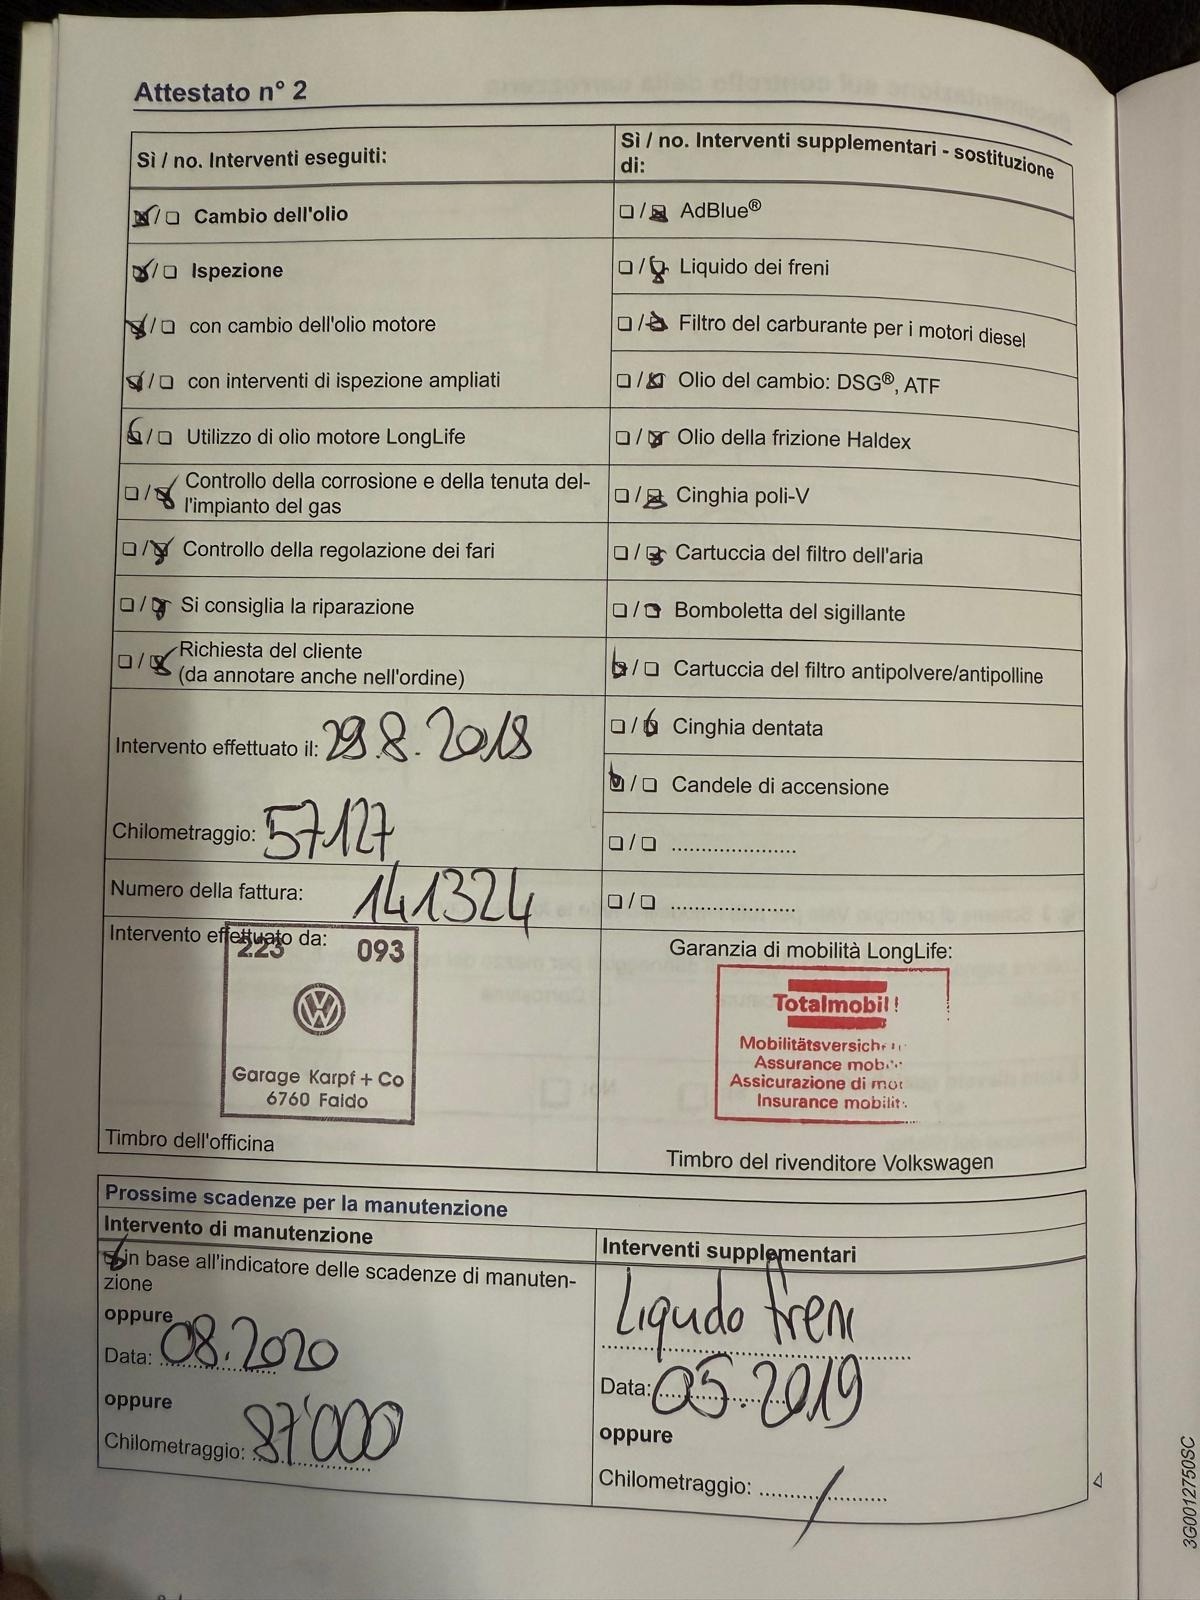 Attestato n° 2
Sì / no. Interventi eseguiti:
☒ / ☐ Cambio dell'olio
☒ / ☐ Ispezione
☒ / ☐ con cambio dell'olio motore
☒ / ☐ con interventi di ispezione ampliati
☒ / ☐ Utilizzo di olio motore LongLife
☐ / ☒ Controllo della corrosione e della tenuta del-
l'impianto del gas
☐ / ☒ Controllo della regolazione dei fari
☐ / ☒ Si consiglia la riparazione
☐ / ☒ Richiesta del cliente
(da annotare anche nell'ordine)
Intervento effettuato il: 29.8.2018
Chilometraggio: 57127
Numero della fattura: 141324
Intervento effettuato da:
223 093
Garage Karpf + Co
6760 Faido
Timbro dell'officina
Sì / no. Interventi supplementari - sostituzione
di:
☐ / ☒ AdBlue®
☐ / ☒ Liquido dei freni
☐ / ☒ Filtro del carburante per i motori diesel
☐ / ☒ Olio del cambio: DSG®, ATF
☐ / ☒ Olio della frizione Haldex
☐ / ☒ Cinghia poli-V
☐ / ☒ Cartuccia del filtro dell'aria
☐ / ☒ Bomboletta del sigillante
☒ / ☐ Cartuccia del filtro antipolvere/antipolline
☐ / ☒ Cinghia dentata
☒ / ☐ Candele di accensione
☐ / ☐ ......................
☐ / ☐ ......................
Garanzia di mobilità LongLife:
Totalmobil!
Mobilitätsversich
Assurance mob
Assicurazione di mo
Insurance mobilit
Timbro del rivenditore Volkswagen
Prossime scadenze per la manutenzione
Intervento di manutenzione
☒ in base all'indicatore delle scadenze di manuten-
zione
oppure
Data: 08.2020
oppure
Chilometraggio: 87'000
Interventi supplementari
Liqudo freni
Data: 05.2019
oppure
Chilometraggio: /
3G0012750SC